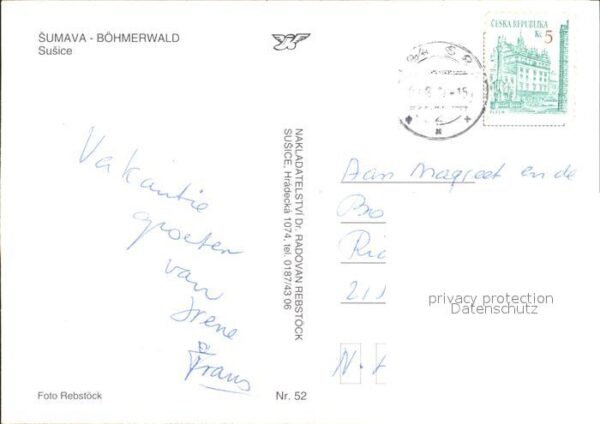 ŠUMAVA - BÖHMERWALD
Sušice
ČESKÁ REPUBLIKA
Kč 5
PLZEŇ
Vakantie
groeten
van
Irene
&
Frans
NAKLADATELSTVÍ Dr. RADOVAN REBSTÖCK
SUŠICE, Hrádecká 1074, tel. 0187/43 06
Aan Magreet en de
Bo
Ric
21
privacy protection
Datenschutz
N.
Foto Rebstöck
Nr. 52